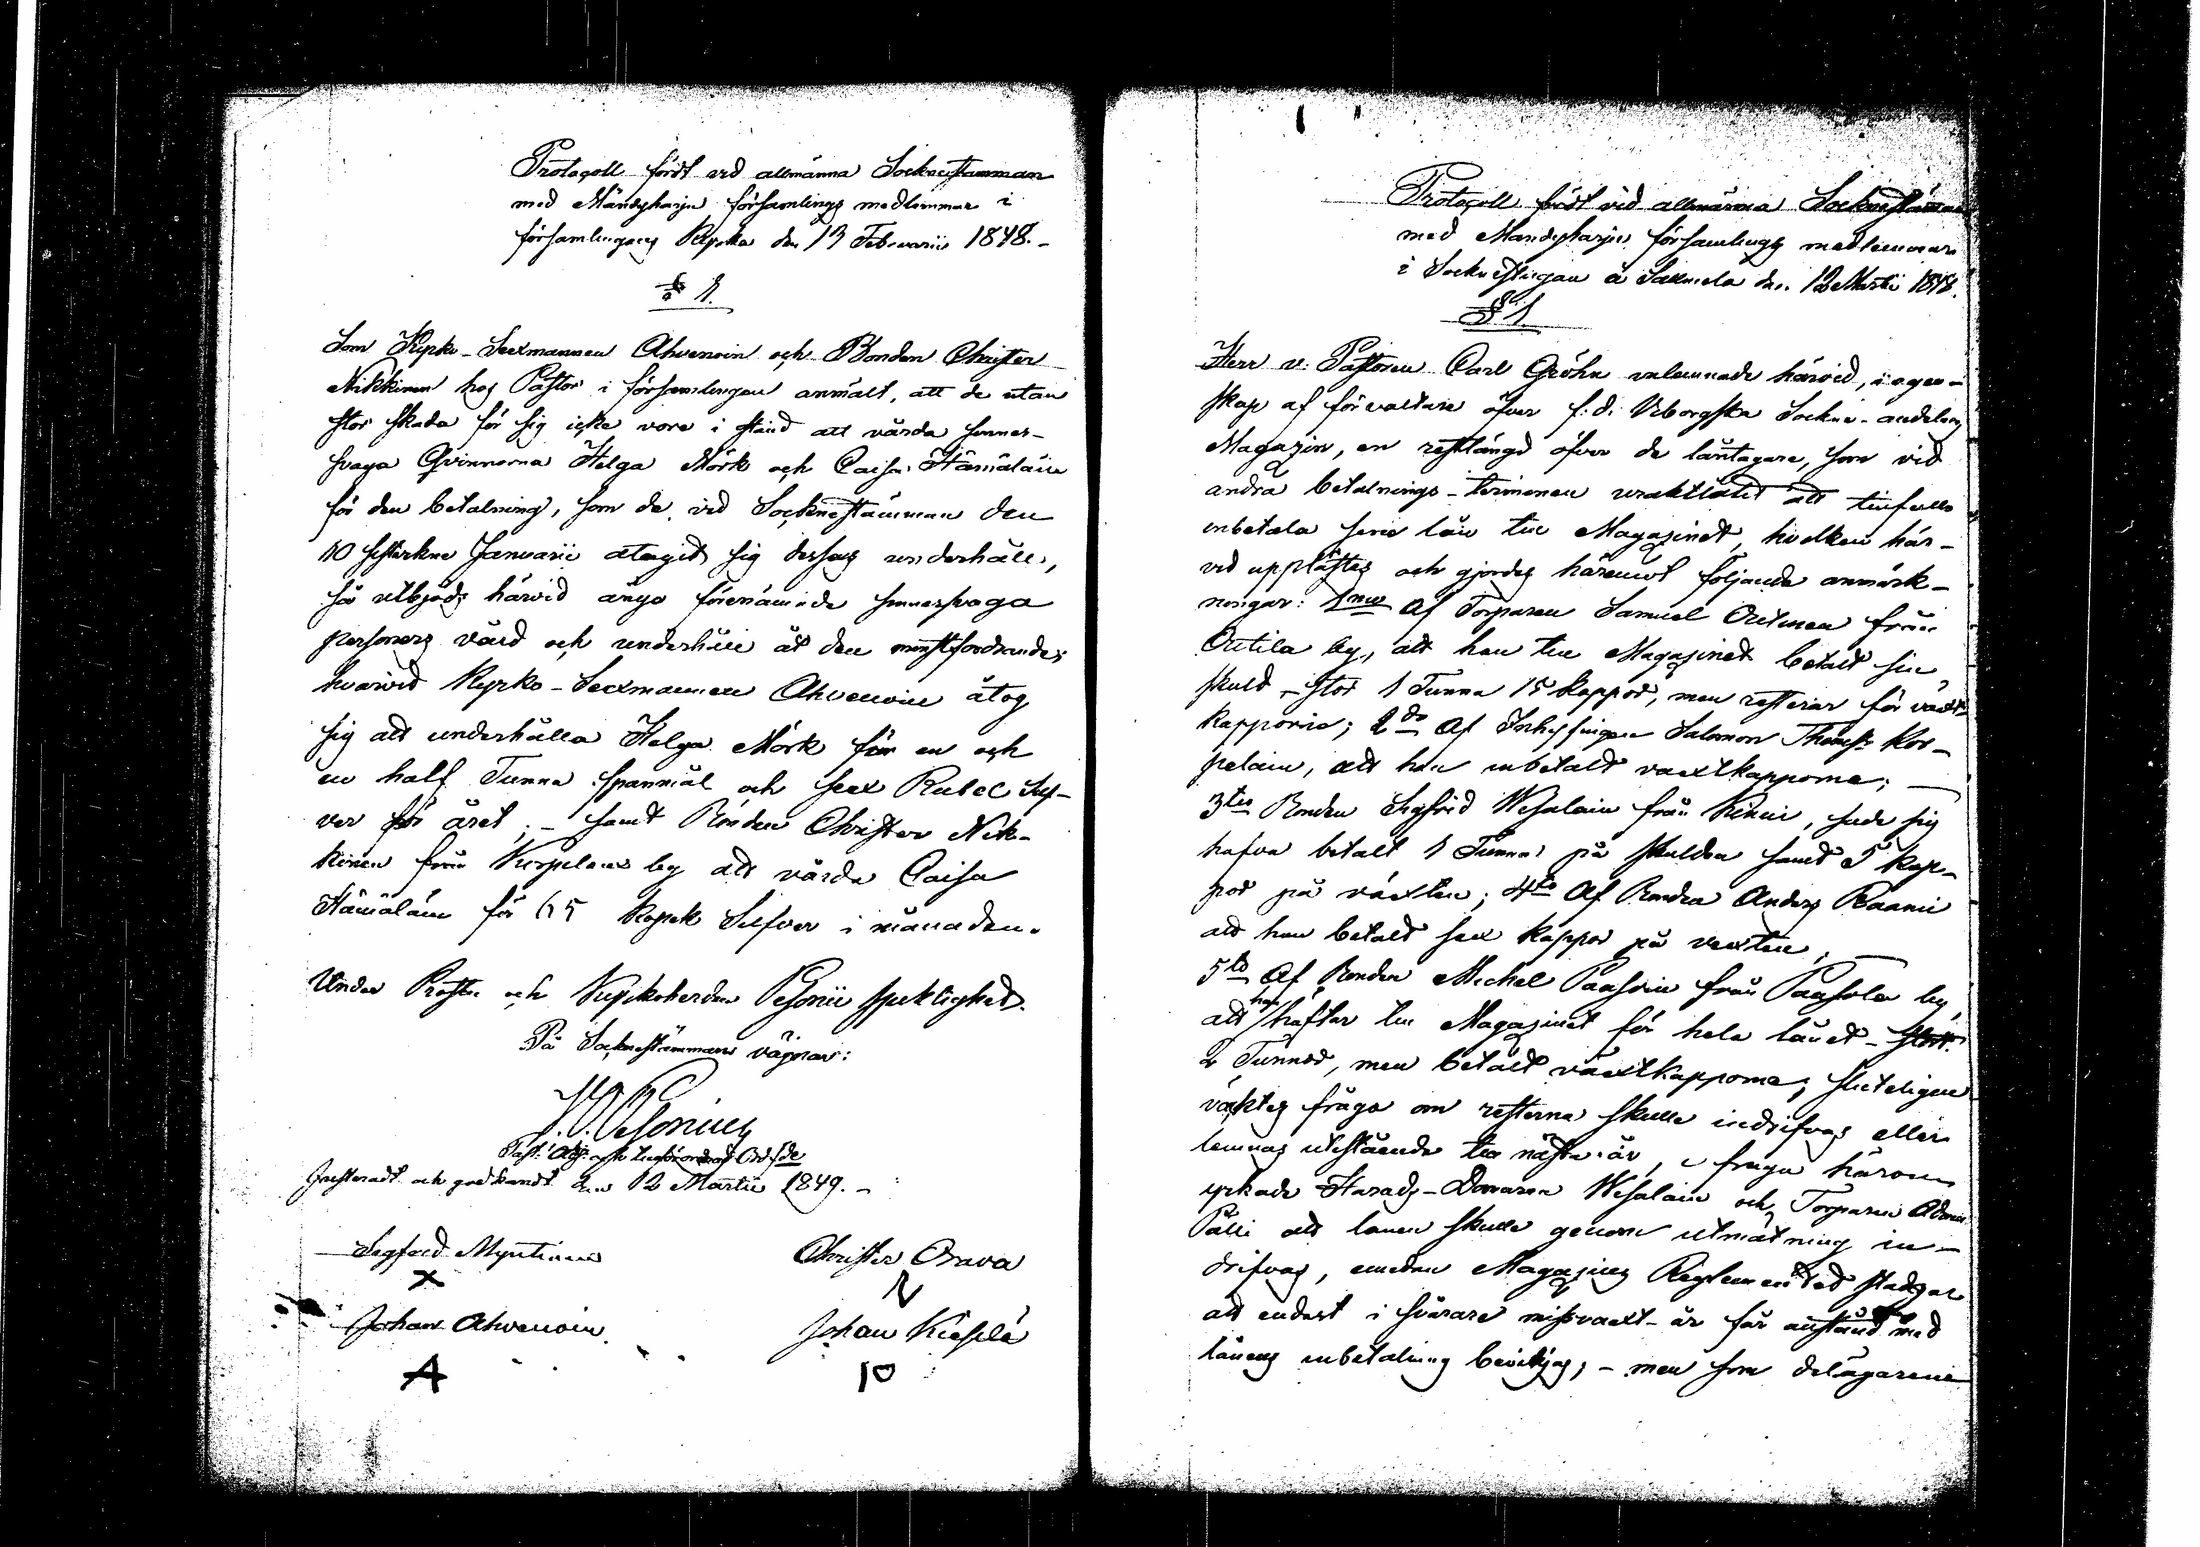 Protocoll fördt vid allmänna Sockenstämman
med Mändyharju församlings medlemmar i
församlingens Kyrka den 13 Februarii 1848.-
§ 1.
Som Kyrko-Sexmannen Ahvenoin och Bonden Christer
Nikkinen hos Pastor i församlingen anmält, att de utan
stor skada för sig icke vore i stånd att vårda sinnes-
svaga Qvinnorna Helga Mörk och Caisa Hämäläin
för den betalning, som de vid Sockenstämman den
10 sistlidne Januarii åtagit sig dessas underhåll,
så utbjöds härvid ånyo förenämnde sinnessvaga
personers vård och underhåll åt den minstfordrande;
hvarvid Kyrko-Sexmannen Ahvenoin åtog
sig att underhålla Helga Mörk för en och
en half Tunna spannmål och sex Rubel Sil-
ver för året; - samt Bonden Christer Nik-
kinen från Kerpelens by att vårda Caisa
Hämäläin för 65 Kopek Silfver i månaden.
Under Prosten och Kyrkoherden Pesonii sjuklighet.
På Sockenstämmans vägnar:
Pesonius
Past: Adj: och tillförordnad Ordfde
Justeradt och godkändt den 12 Martii 1849. -
Sigfrid Myntinen Christer Orava
X
Johan Ahvenoin Johan Kiesilä
A
Protocoll fördt vid allmänna Sockenstämman
med Mändyharju församlings medlemmar
i Sockenstugan å Saxmela den 12 Martii 1848.
§ 1.
Herr v. Pastoren Carl Gröhn inlemnade härvid, i egen-
skap af förvaltare öfver f. d. Viborgska Sockne-andelens
Magazin, en restlängd öfver de låntagare, som vid
andra betalnings-terminen uraktlåtit att tillfullo
inbetala sine lån till Magazinet, hvilken här-
vid upplästes och gjordes häremot följande anmärk-
ningar: 1mo Af Torparen Samuel Outinen från
Outila by, att han till Magazinet betalt sin
skuld - stor 1 Tunna 15 kappor, men resterar för växt-
kapporne; 2do Af Inhysingen Salomon Thomass: Kor-
pelain, att han inbetalt växtkapporna; —
3tio Bonden Sigfrid Wesalain från Kinni, sade sig
hafva betalt 1 Tunna på skulden samt 5 kap-
por på växten; 4to Af Bonden Anders Raami
att han betalt sex kappor på växten; —
5to Af Bonden Michel Paasoin från Paasola by,
att han häftar till Magazinet för hela lånet - stort
2 Tunnor, men betalt växtkapporna; sluteligen
väcktes fråga om resterna skulle indrifvas eller
lemnas utestående till nästa år, i fråga härom
yrkade Härads-Domaren Wesalain och Torparen Adam
Pälli att lånen skulle genom utmätning in-
drifvas, emedan Magazins Reglementet stadgar
att endast i svårare missvext-år får anstånd med
lånens inbetalning beviljas; - men som delägarene